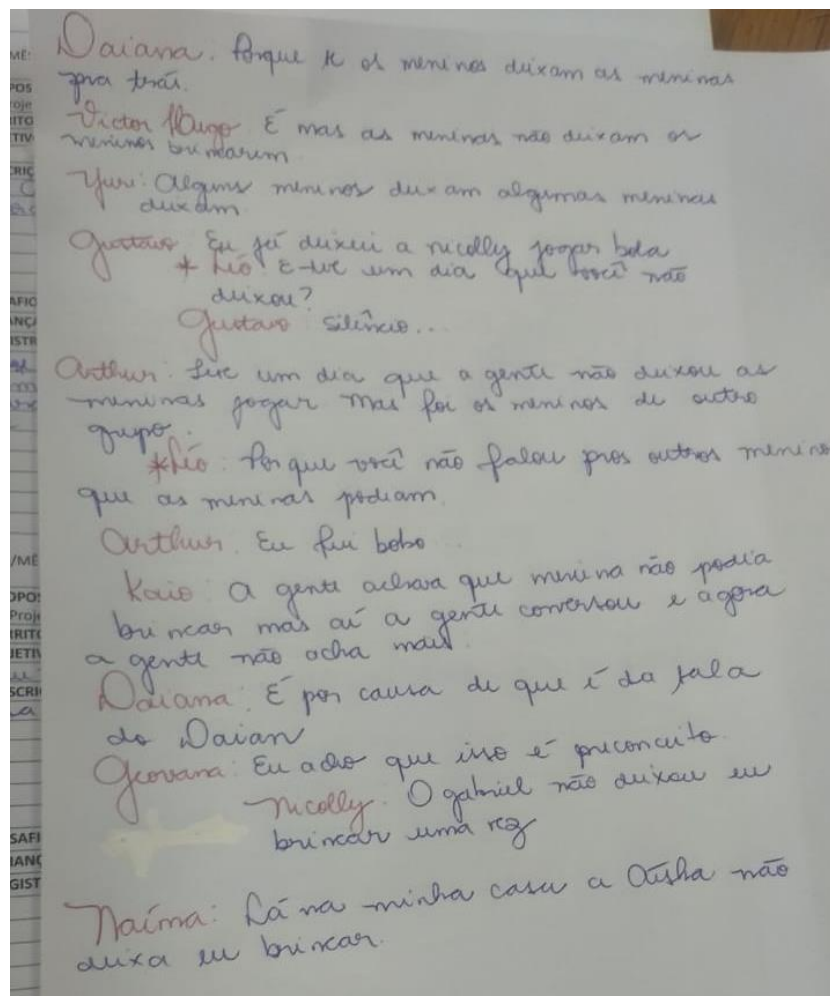 Daiana: Porque se os meninos deixam as meninas
pra trás.
Victor Hugo É mas as meninas não deixam os
meninos brincarem
Yuri: Alguns meninos deixam algumas meninas
deixam
Gustavo Eu já deixei a nicolly jogar bola
* Léo: E teve um dia que você não
deixou?
Gustavo silêncio...
Arthur: Teve um dia que a gente não deixou as
meninas jogar mas foi os meninos de outro
grupo.
*Léo: Por que você não falou pros outros menino
que as meninas podiam
Arthur: Eu fui bobo
Kaio: A gente achava que menina não podia
brincar mas aí a gente conversou e agora
a gente não acha mais.
Daiana: É por causa de que é da sala
do Daian
Geovana: Eu acho que isso é preconceito.
Nicolly: O gabriel não deixou eu
brincar uma vez
Naíma: Lá na minha casa a Aisha não
deixa eu brincar.
VME:
POS
oje
RITO
TIV
CRIÇ
AFIO
ANÇA
ISTR
/MÊ
OPO
Proje
RITO
JETIV
SCRI
SAFI
IANÇ
GIST